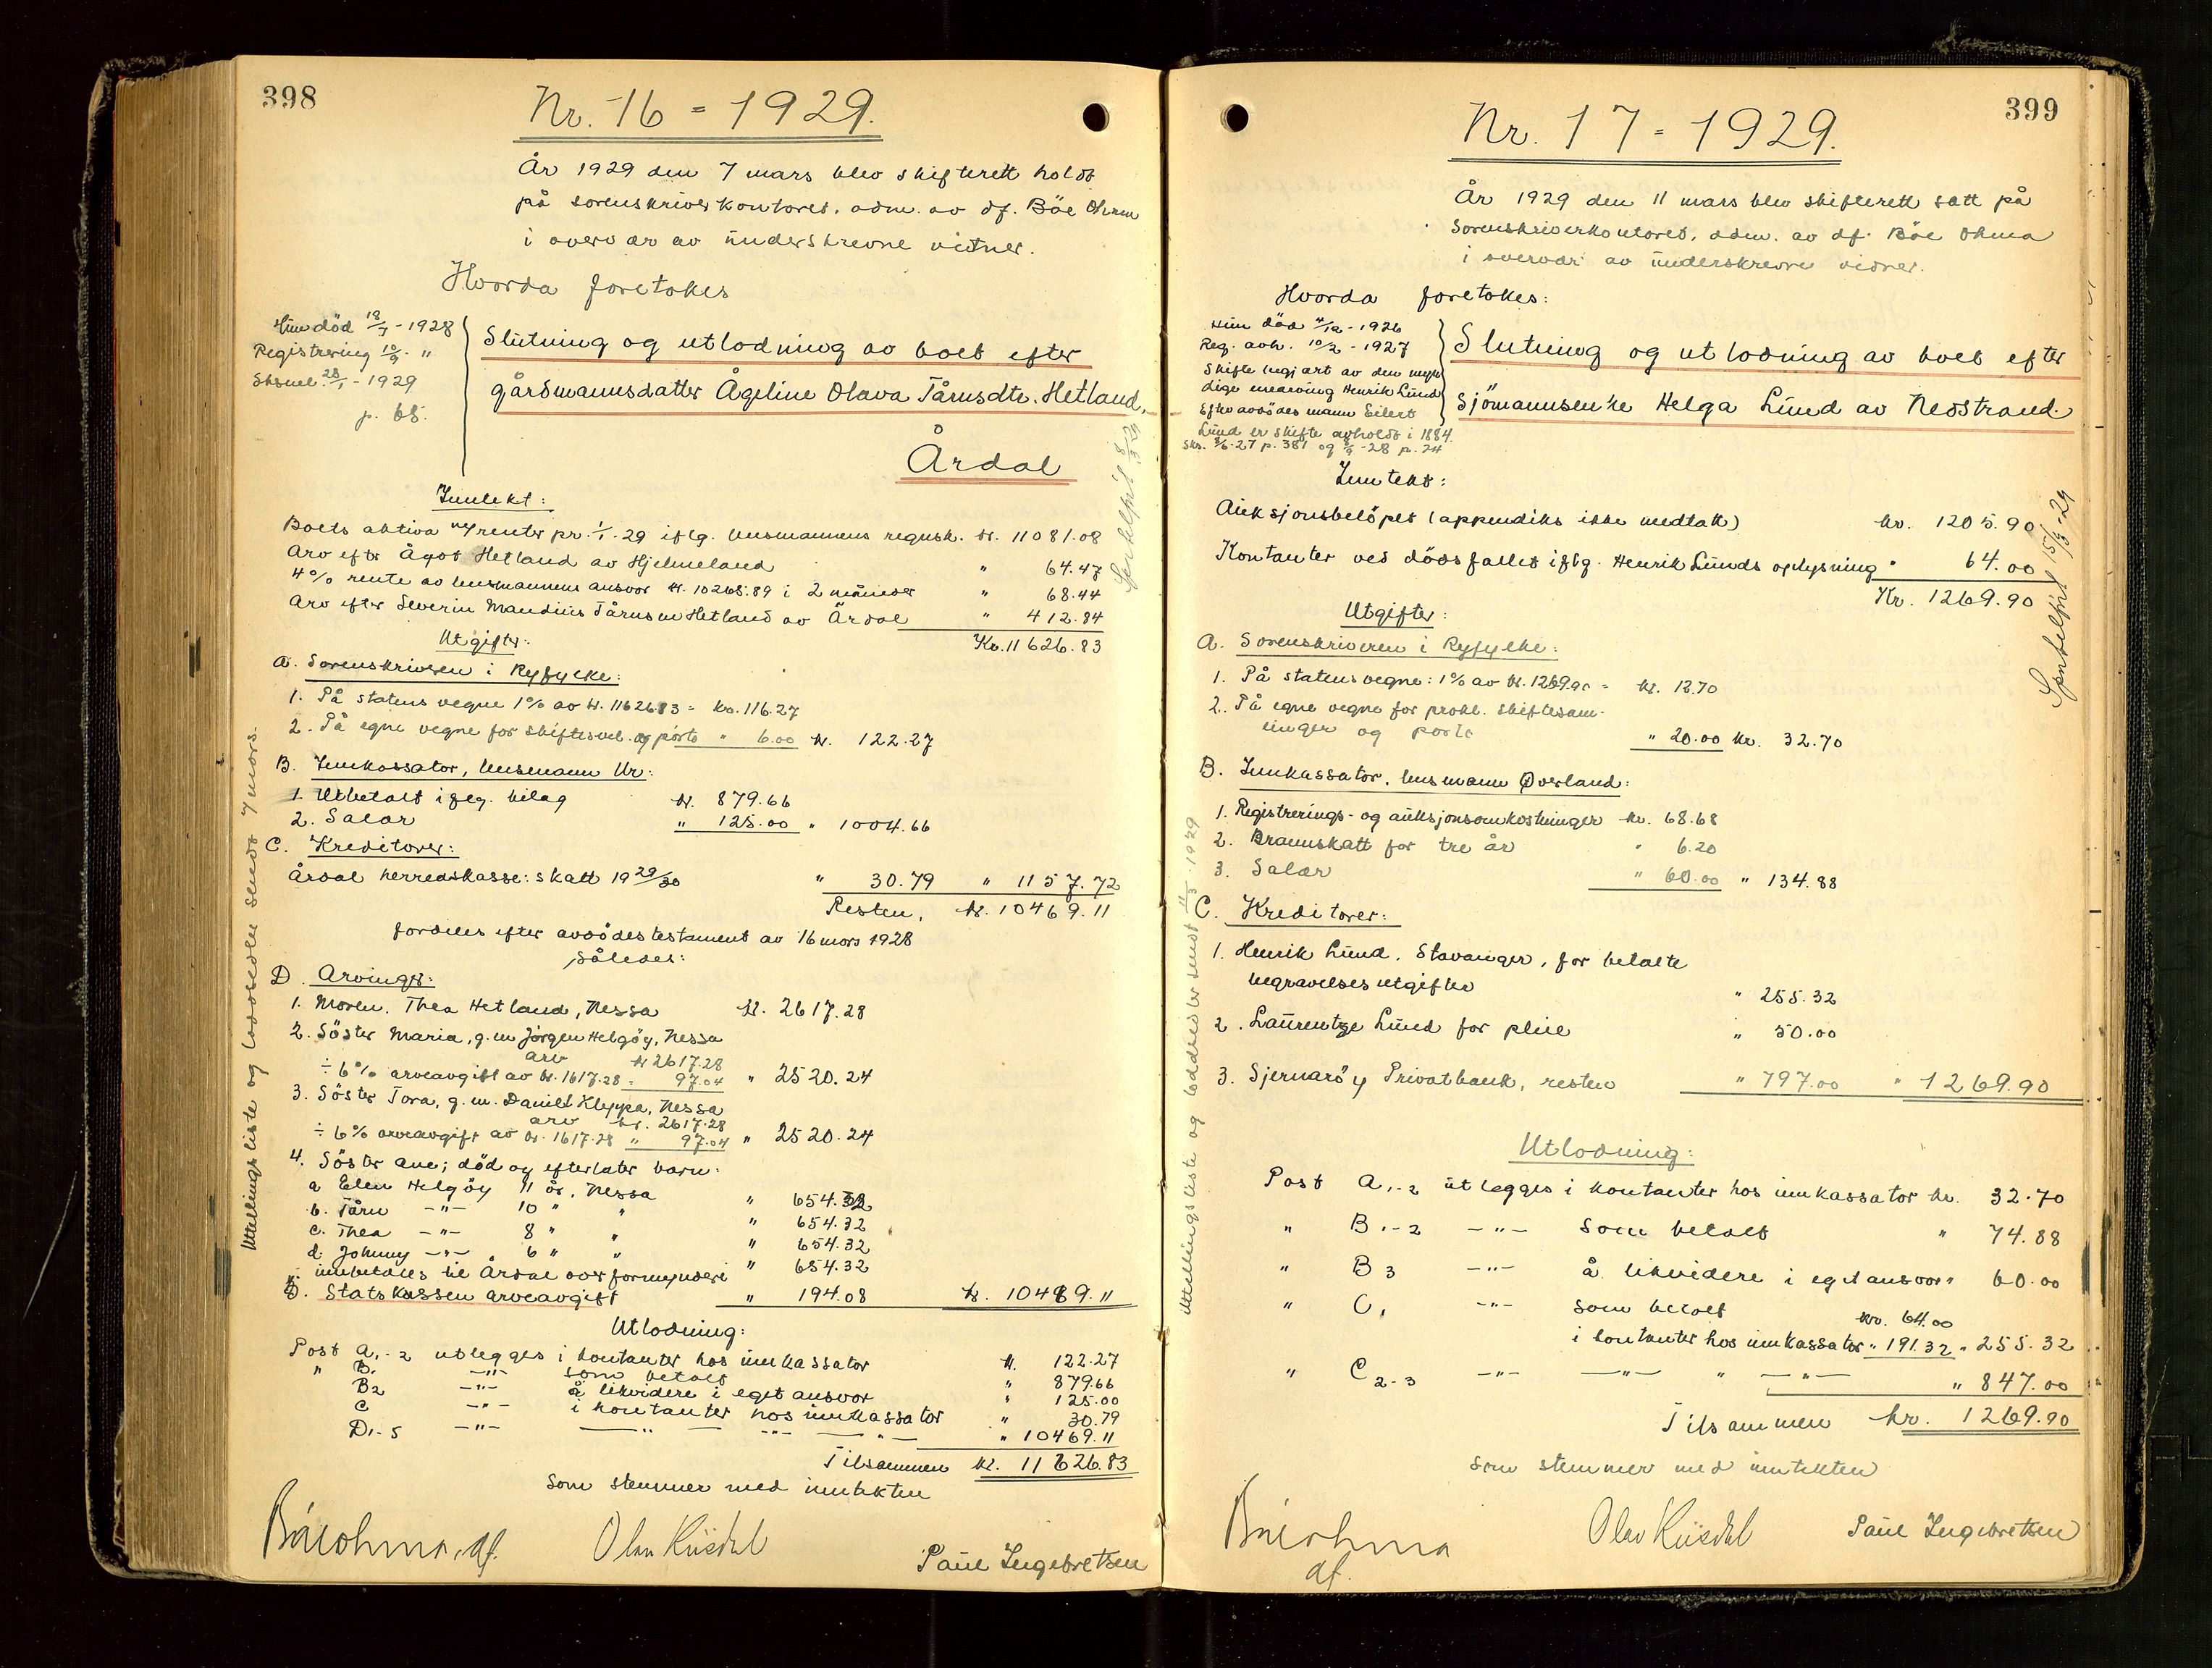 398
Nr. 16 = 1929.
År 1929 den 7 mars blev skifterett holdt
på sorenskriverkontoret, adm. av df. Böe Ohma
i overvær av underskrevne vidner.
Hvorda foretokes
Hun död 18/7 - 1928
Registrering 10/9 - "
Sksml. 28/1 - 1929
p. 65.
Slutning og utlodning av boet efter
gårdmannsdatter Ågeline Olava Tårnsdtr. Hetland,
Årdal
Inntekt:
Boets aktiva m/renter pr. 1/1-29 iflg. lensmannens regnsk. kr. 11081.08
Arv efter Ågot Hetland av Hjelmeland " 64.47
4% rente av lensmannens ansvar kr. 10265.89 i 2 måneder " 68.44
Arv efter Severin Mandius Tårnsen Hetland av Årdal " 412.84
Kr. 11626.83
Utgifter:
A. Sorenskriveren i Ryfylke:
1. På statens vegne 1% av kr. 11626.83 = kr. 116.27
2. På egne vegne for skiftesvel. og porto " 6.00 kr. 122.27
B. Innkassator, lensmann Ur:
1. Utbetalt iflg. bilag kr. 879.66
2. Salær " 125.00 " 1004.66
C. Kreditorer:
Årdal herredskasse: skatt 1929/30 " 30.79 " 1157.72
Resten, kr. 10469.11
fordeles efter avdödes testament av 16 mars 1928
således:
D. Arvinger:
1. Moren, Thea Hetland, Nessa kr. 2617.28
2. Söster Maria, g.m. Jörgen Helgöy, Nessa
arv kr 2617.28
÷ 6% arveavgift av kr. 1617.28 = 97.04 " 2520.24
3. Söster Tora, g.m. Daniel Kleppa, Nessa
arv kr. 2617.28
÷ 6% arveavgift av kr. 1617.28 " 97.04 " 2520.24
4. Söster Ane; död og efterlater barn:
a Elen Helgöy 11 år, Nessa " 654.32
b. Tårn -"- 10 " " " 654.32
c. Thea -"- 8 " " " 654.32
d. Johnny -"- 6 " " " 654.32
innbetales til Årdal overformynderi
5. Statskassen arveavgift " 194.08 kr. 10469.11
Utlodning:
Post A1-2 utlegges i kontanter hos innkassator kr. 122.27
" B1 -"- som betalt " 879.66
B2 -"- å likvidere i eget ansvar " 125.00
C -"- i kontanter hos innkassator " 30.79
D1-5 -"- -"- -"- -"- " 10469.11
Tilsammen kr. 11626.83
Som stemmer med inntekten
Böe Ohma, df. Olav Kiisdal Paul Ingebretsen
Uttellingsliste og loddsedler sendt 7 mars.
399
Nr. 17 = 1929.
År 1929 den 11 mars blev skifterett satt på
Sorenskriverkontoret, adm. av df. Böe Ohma
i overvær av underskrevne vidner.
Hvorda foretokes:
Hun död 4/12 - 1926
Reg. avh. 10/2 - 1927
Skifte begjært av den myn
dige enearving Henrik Lund
Efter avdödes mann Eilert
Lund er skifte avholdt i 1884.
Sks. 8/6-27 p. 381 og -28 p. 24
Slutning og utlodning av boet efter
Sjömannsenke Helga Lund av Nedstrand.
Inntekt:
Auksjonsbelöpet (appendiks ikke medtatt) kr. 1205.90
Kontanter ved dödsfallet iflg. Henrik Lunds oplysning " 64.00
Kr. 1269.90
Utgifter:
A. Sorenskriveren i Ryfylke:
1. På statens vegne: 1% av kr. 1269.90 = kr. 12.70
2. På egne vegne for prokl. skiftesam-
linger og porto " 20.00 kr. 32.70
B. Innkassator, lensmann Överland:
1. Registrerings- og auksjonsomkostninger kr. 68.68
2. Brannskatt for tre år " 6.20
3. Salær " 60.00 " 134.88
C. Kreditorer:
1. Henrik Lund, Stavanger, for betalte
begravelsesutgifter " 255.32
2. Laurentze Lund for pleie " 50.00
3. Sjernaröy Privatbank, resten " 797.00 " 1269.90
Utlodning:
Post A1-2 utlegges i kontanter hos innkassator kr. 32.70
" B1-2 -"- som betalt " 74.88
" B3 -"- å likvidere i eget ansvar " 60.00
" C1 -"- som betalt kr. 64.00
i kontanter hos innkassator " 191.32 " 255.32
" C2-3 -"- -"- " -"- " 847.00
Tilsammen kr. 1269.90
Som stemmer med inntekten
Böe Ohma
df.
Olav Kiisdal Paul Ingebretsen
Uttellingsliste og loddsedler sendt 11/3 1929